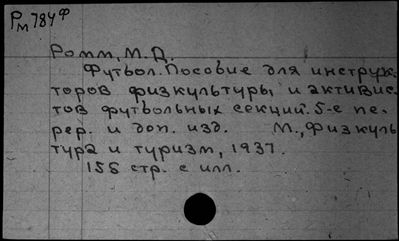 Рм784ф
Ромм, М. Д.
Футбол. Пособие для инструк-
торов физкультуры и активис-
тов футбольных секций. 5-е пе-
рер. и доп. изд. М., „Физкуль
тура и туризм, 1937.
155 стр. с илл.